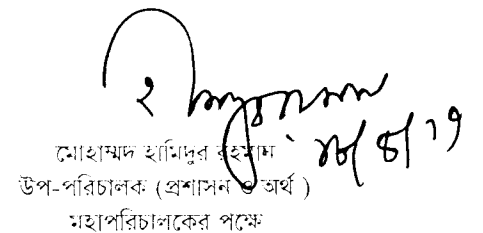 মোহাম্মদ হামিদুর রহমান
উপ-পরিচালক (প্রশাসন ও অর্থ )
মহাপরিচালকের পক্ষে